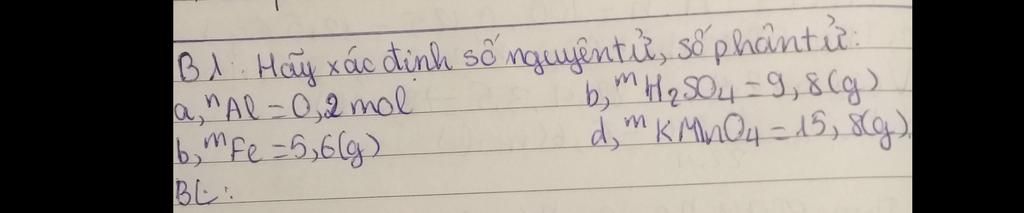 B1: Hãy xác định số nguyên tử, số phân tử:
a, nAl = 0,2 mol b, mH2SO4 = 9,8(g)
b, mFe = 5,6(g) d, mKMnO4 = 15,8(g)
BL: